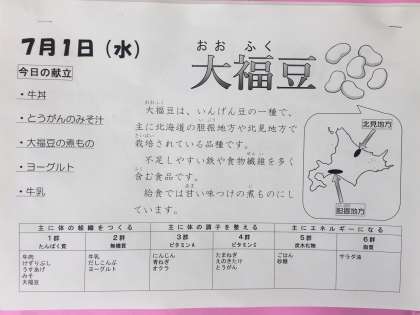 7月1日（水）
今日の献立
・牛丼
・とうがんのみそ汁
・大福豆の煮もの
・ヨーグルト
・牛乳
おお ふく
大福豆
おおふく
大福豆は、いんげん豆の一種で、
主に北海道の胆振地方や北見地方で
栽培されている品種です。
不足しやすい鉄や食物繊維を多く
含む食品です。
給食では甘い味つけの煮ものにし
ています。
北見地方
胆振地方
主に体の組織をつくる 主に体の調子を整える 主にエネルギーになる
1群 2群 3群 4群 5群 6群
たんぱく質 無機質 ビタミンA ビタミンC 炭水化物 脂質
牛肉 牛乳 にんじん たまねぎ ごはん サラダ油
けずりぶし だしこんぶ 青ねぎ えのきたけ 砂糖
うすあげ ヨーグルト オクラ とうがん
みそ
大福豆